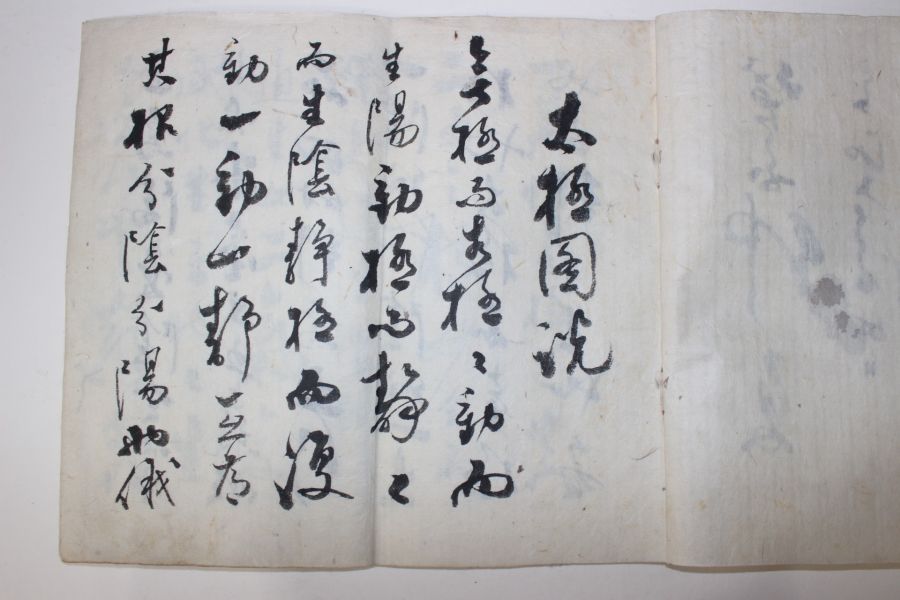 太極圖說
無極而太極〻動而
生陽動極而靜〻
而生陰靜極而復
動一動一靜互爲
其根分陰分陽兩儀